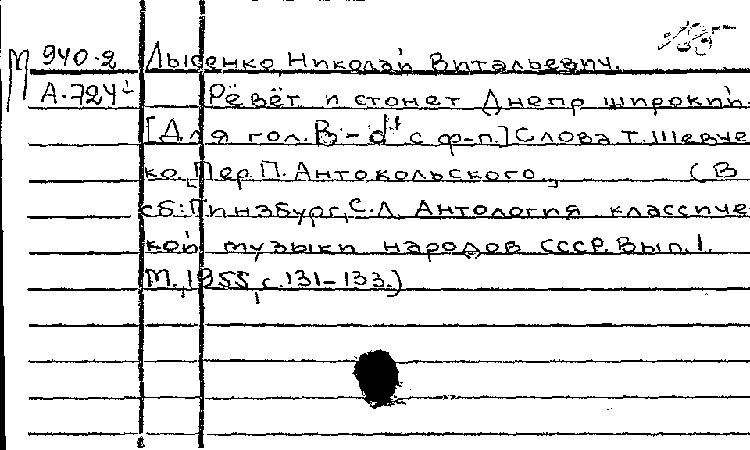 М 940.2 Лысенко, Николай Витальевич.
А-724 Ревёт и стонет Днепр широкий.
[Для гол. B-d² с ф-п.] Слова Т. Шевче
ко, Пер. П. Антокольского, (В
сб: Гинзбург, С.Л. Антология классиче
кой музыки народов СССР. Вып. 1.
М., 1955, с. 131-133.)